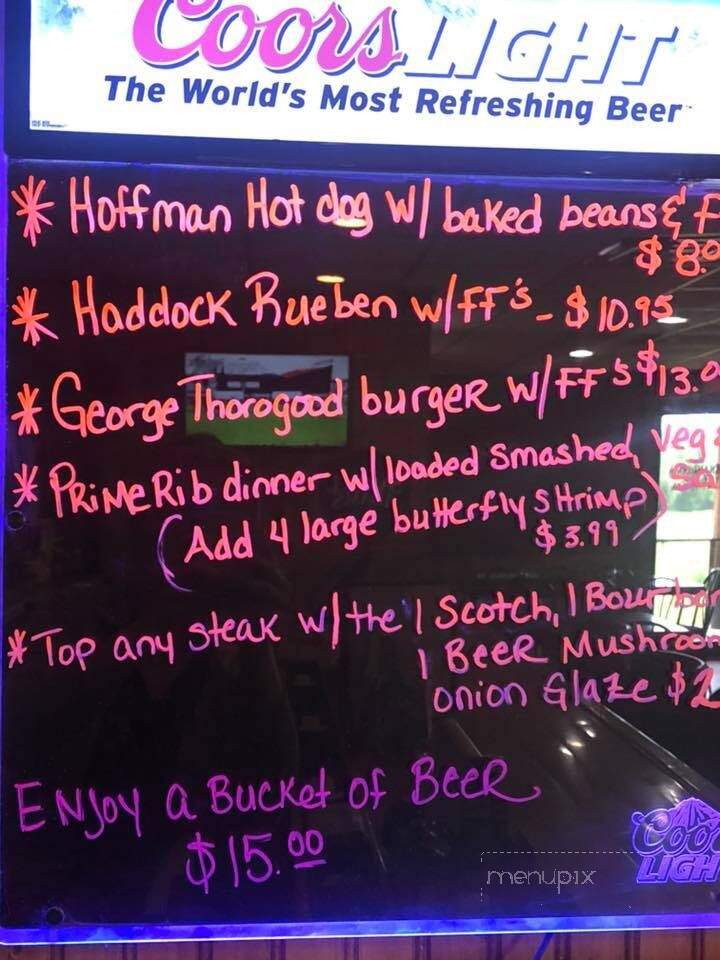 Coors LIGHT
The World's Most Refreshing Beer
* Hoffman Hot dog w/ baked beans & F
$ 8.0
* Haddock Rueben w/FF's - $10.95
* George Thorogood burger w/FF's $13.0
* Prime Rib dinner w/loaded smashed, veg
(Add 4 large butterfly shrimp)
$3.99
* Top any steak w/the 1 Scotch, 1 Bourbon
1 Beer Mushroom
onion Glaze $2
Enjoy a Bucket of Beer
$15.00
Coo
LIGH
menupix